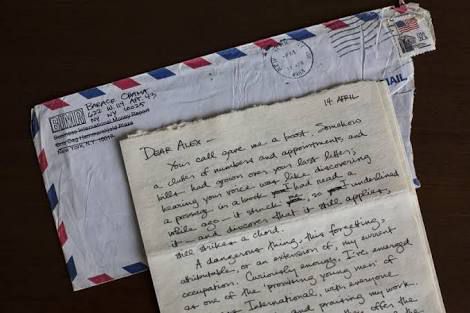 BARACK OBAMA
622 W. 114 APT. 43
NY NY 10025
BIMR
Business International Money Report
New York, N.Y. 10017
MAIL
14 APRIL
DEAR ALEX -
Your call gave me a boost. Somehow
a clutter of numbers and appointments and
bills had grown over your last letter;
hearing your voice was like discovering
a passage in a book you I had read a
while ago - it struck you, so I underlined
it - and discover that it still applies,
still strikes a chord.
A dangerous thing, this forgetting,
attributable, or an extension of, my current
occupation. Curiously enough, I've emerged
as one of the "promising young men" of
International, with everyone
and praising my work.
they offer the